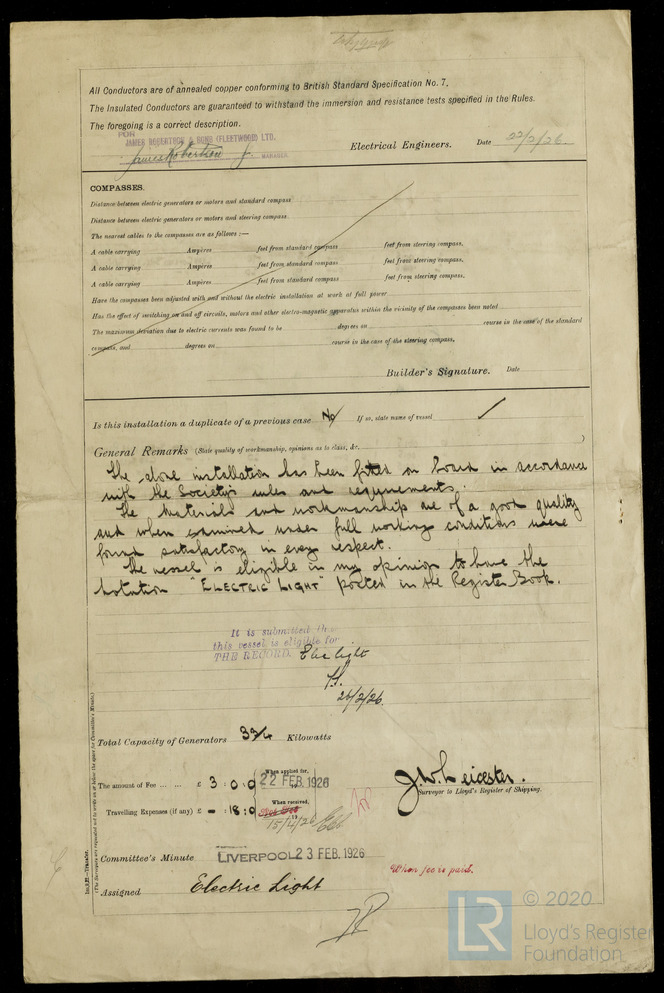 All Conductors are of annealed copper conforming to British Standard Specification No. 7.
The Insulated Conductors are guaranteed to withstand the immersion and resistance tests specified in the Rules.
The foregoing is a correct description.
FOR
JAMES ROBERTSON & SONS (FLEETWOOD) LTD.
James Robertson Jr. MANAGER. Electrical Engineers. Date 22/2/26.
COMPASSES.
Distance between electric generators or motors and standard compass
Distance between electric generators or motors and steering compass
The nearest cables to the compasses are as follows :—
A cable carrying Ampères feet from standard compass feet from steering compass.
A cable carrying Ampères feet from standard compass feet from steering compass.
A cable carrying Ampères feet from standard compass feet from steering compass.
Have the compasses been adjusted with and without the electric installation at work at full power
Has the effect of switching on and off circuits, motors and other electro-magnetic apparatus within the vicinity of the compasses been noted
The maximum deviation due to electric currents was found to be degrees on course in the case of the standard
compass, and degrees on course in the case of the steering compass.
Builder's Signature. Date
Is this installation a duplicate of a previous case No If so, state name of vessel
General Remarks (State quality of workmanship, opinions as to class, &c. )
The above installation has been fitted on board in accordance
with the Society's rules and requirements.
The materials and workmanship are of a good quality
and when examined under full working conditions were
found satisfactory in every respect.
The vessel is eligible in my opinion to have the
notation "ELECTRIC LIGHT" posted in the Register Book.
It is submitted that
this vessel is eligible for
THE RECORD. Elec light
26/2/26.
Total Capacity of Generators 3 3/4 Kilowatts
The amount of Fee ... ... £ 3 : 0 : 0 When applied for, 22 FEB. 1926
J.W. Leicester.
Surveyor to Lloyd's Register of Shipping.
Travelling Expenses (if any) £ - : 18 : 0 When received,
15/4/26
Committee's Minute LIVERPOOL 23 FEB. 1926
When fee is paid.
Assigned Electric Light
Im. 3,25.—Transfer.
(The Surveyors are requested not to write on or below the space for Committee's Minute.)
LR
© 2020
Lloyd's Register
Foundation